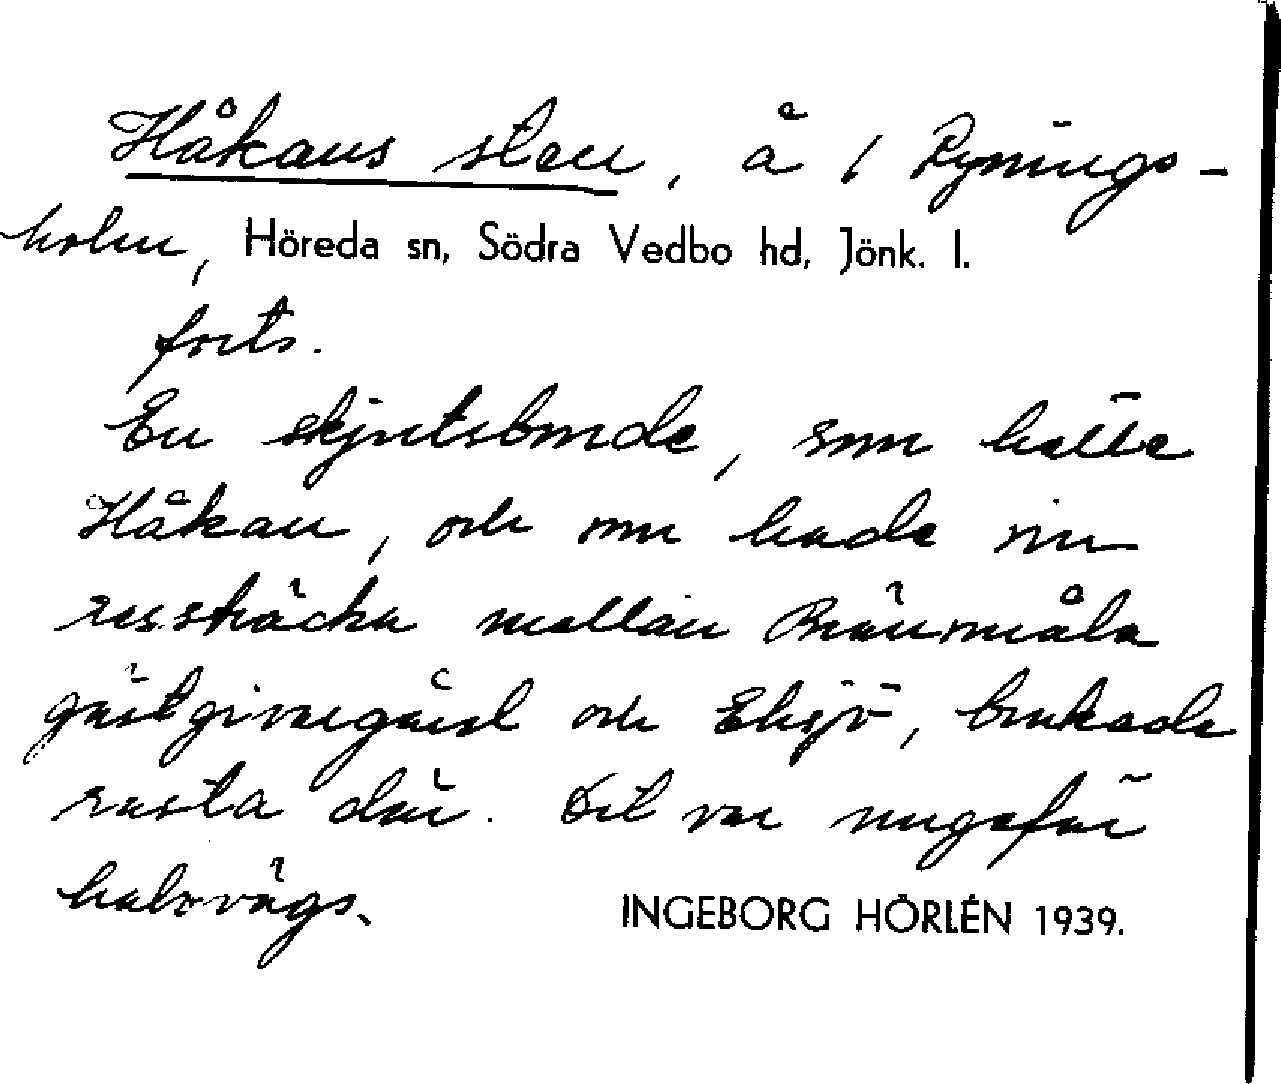 Håkans sten, å 1 Rynings-
holm, Höreda sn, Södra Vedbo hd, Jönk. l.
forts.
En skjutsbonde, som hette
Håkan, och som hade sin
ressträcka mellan Brånsmåla
gästgivaregård och Eksjö, brukade
rasta där. Det var ungefär
halvvägs.
INGEBORG HÖRLÉN 1939.